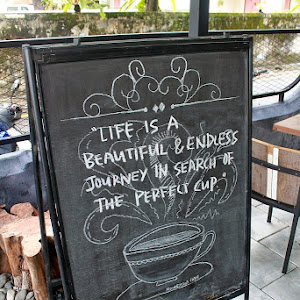 "LIFE IS A
BEAUTIFUL & ENDLESS
JOURNEY IN SEARCH OF
THE PERFECT CUP".